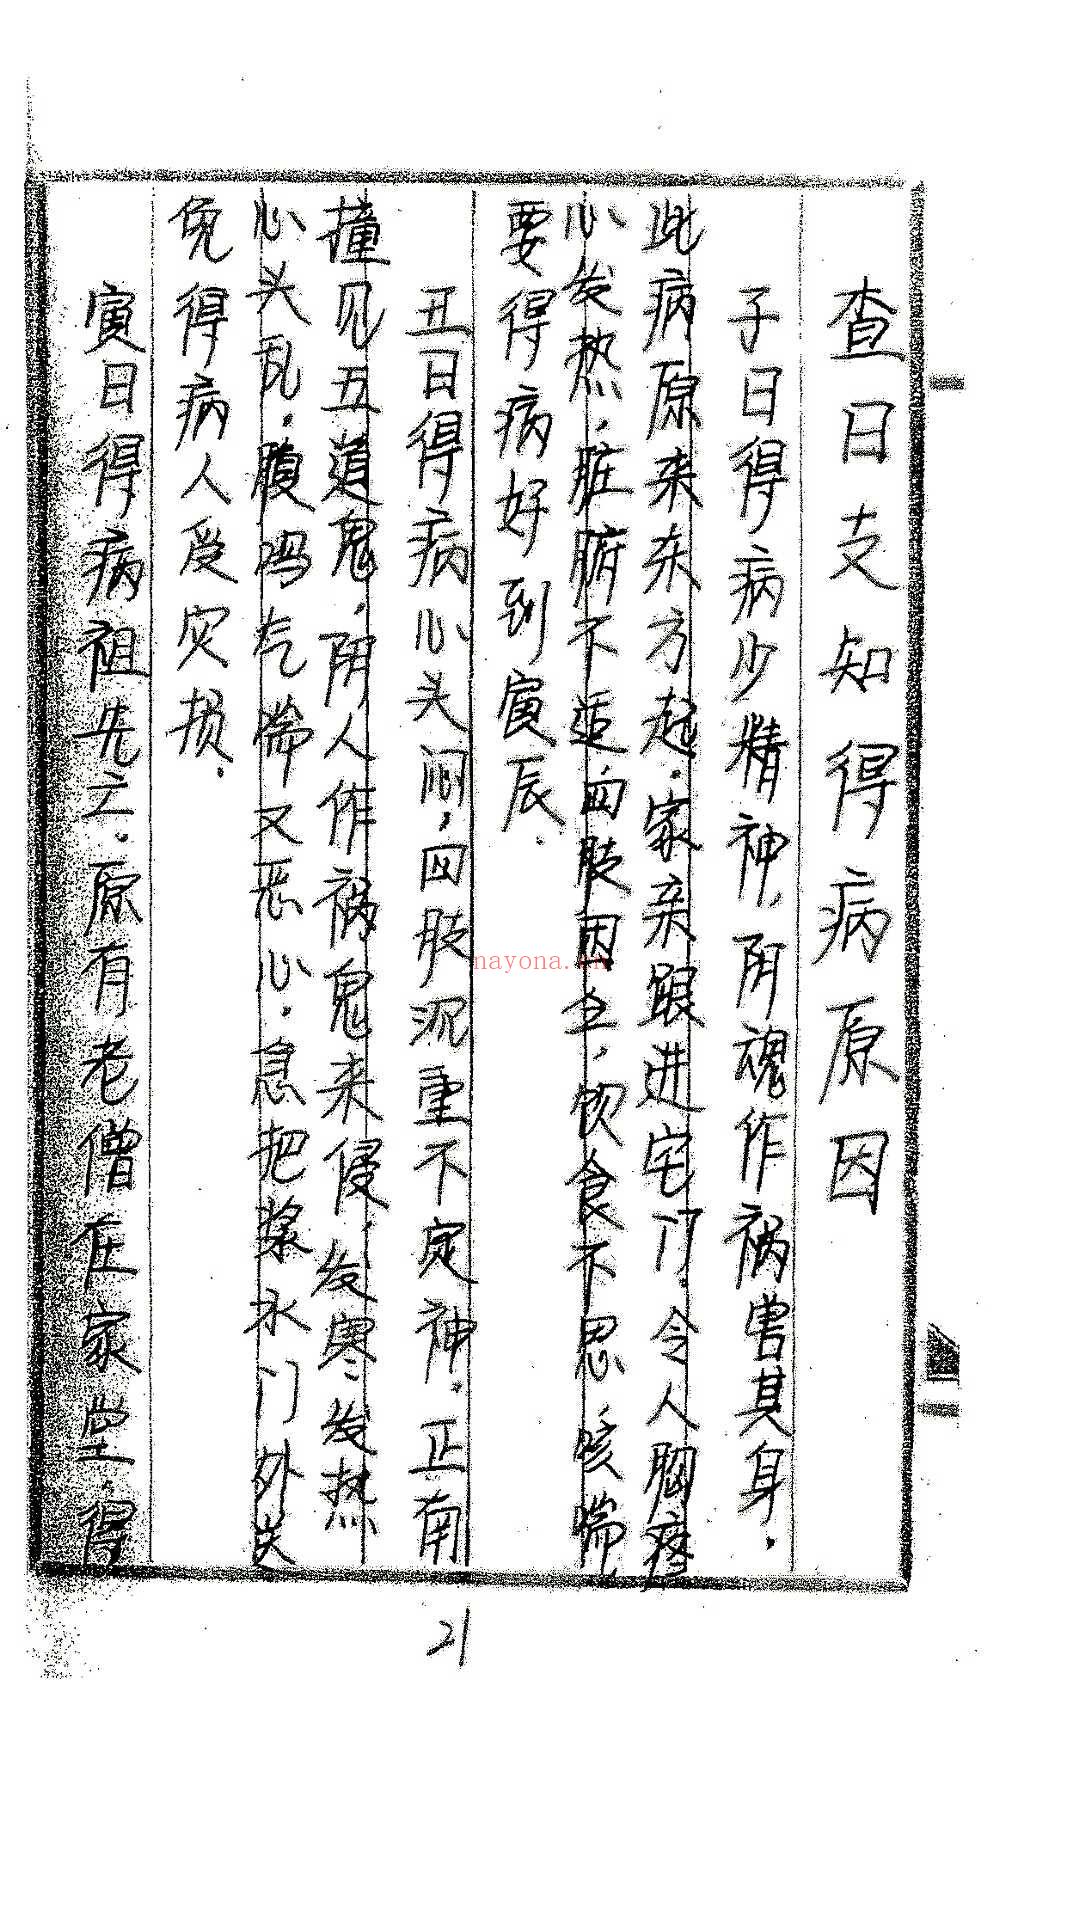 查日支知得病原因
子日得病少精神,阴魂作祸害其身.
此病原来东方起.家亲跟进宅门.令人胸疼
心发热,脏腑不适,四肢困全,饮食不思,咳喘
要得病好到寅辰.
丑日得病心头闷,四肢沉重不定神.正南
撞见五道鬼,阴人作祸鬼来侵,发寒发热
心头乱.腹鸣气喘又恶心.急把浆水门外送
免得病人受灾损.
寅日得病祖先之.原有老僧在家堂.得
21
nayona.cn